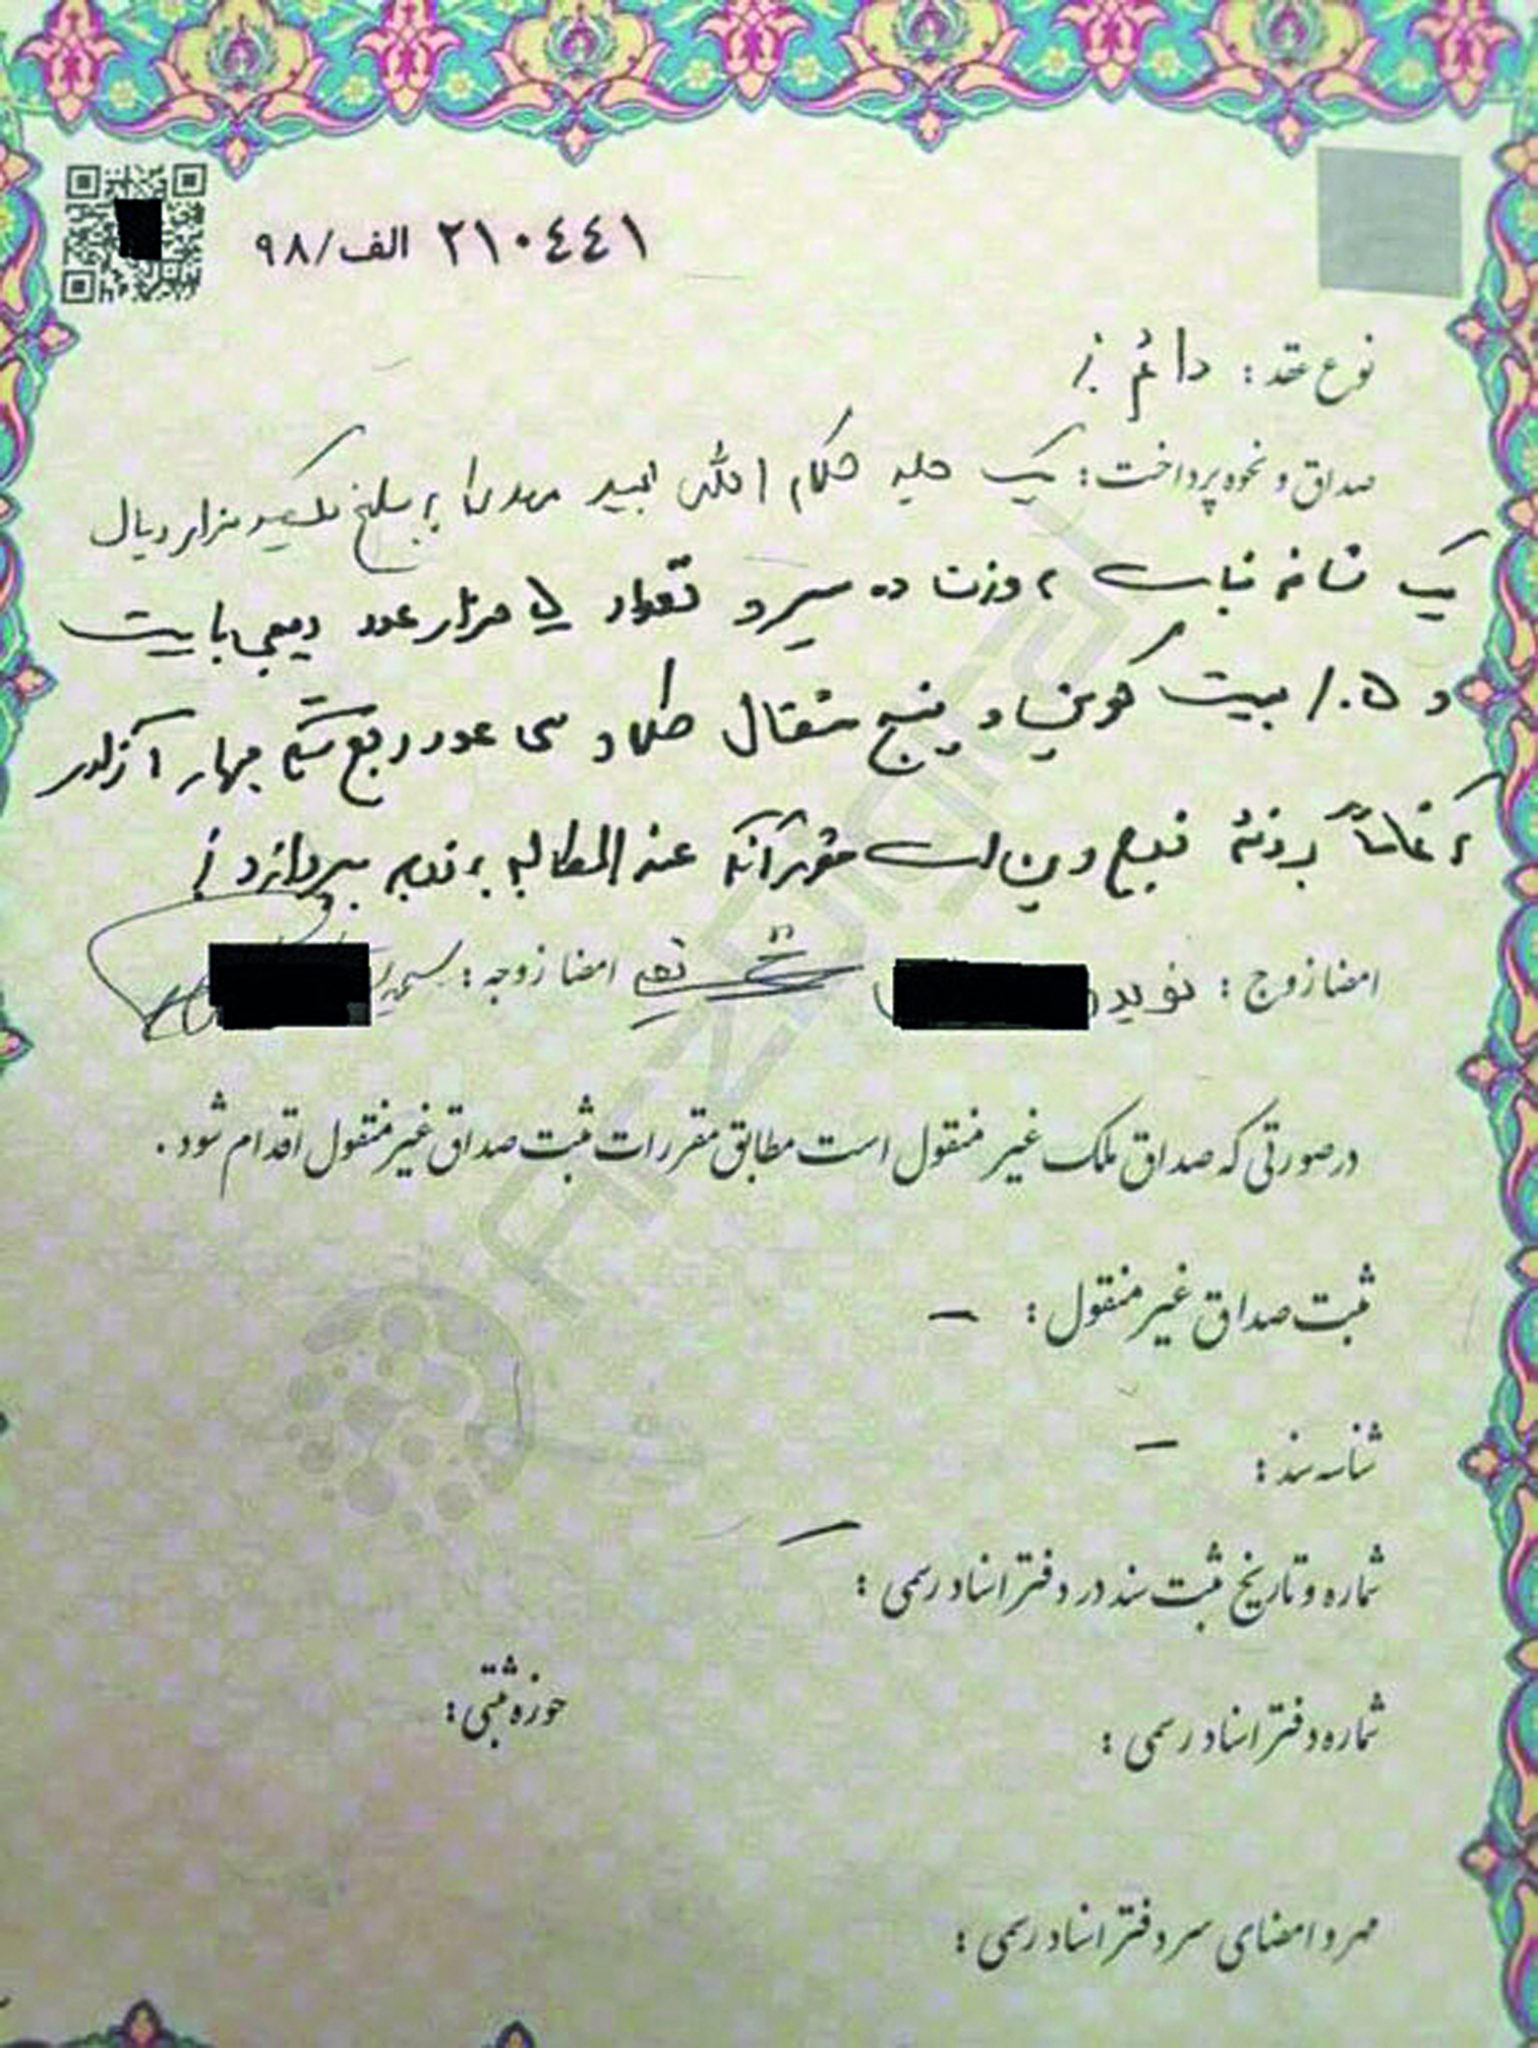 ۲۱۰۴۴۱ الف/۹۸
نوع عقد : دائم
صداق و نحوه پرداخت : یک جلد کلام الله مجید مهدی به مبلغ یکصد هزار ریال
یک شاخه نبات به وزن ده سیر و تعداد هزار عدد دیجی بایت
و ۰.۵ بیت کوین و پنج مثقال طلا و سی عدد ربع سکه بهار آزادی
که تماماً بر ذمه زوج دین است مقرر آنکه عند المطالبه به زوجه بپردازد
امضا زوج : نوید امضا زوجه :
در صورتی که صداق ملک غیر منقول است مطابق مقررات ثبت صداق غیر منقول اقدام شود .
ثبت صداق غیر منقول : –
شناسه سند : –
شماره و تاریخ ثبت سند در دفتر اسناد رسمی : –
شماره دفتر اسناد رسمی : حوزه ثبتی :
مهر و امضای سردفتر اسناد رسمی :